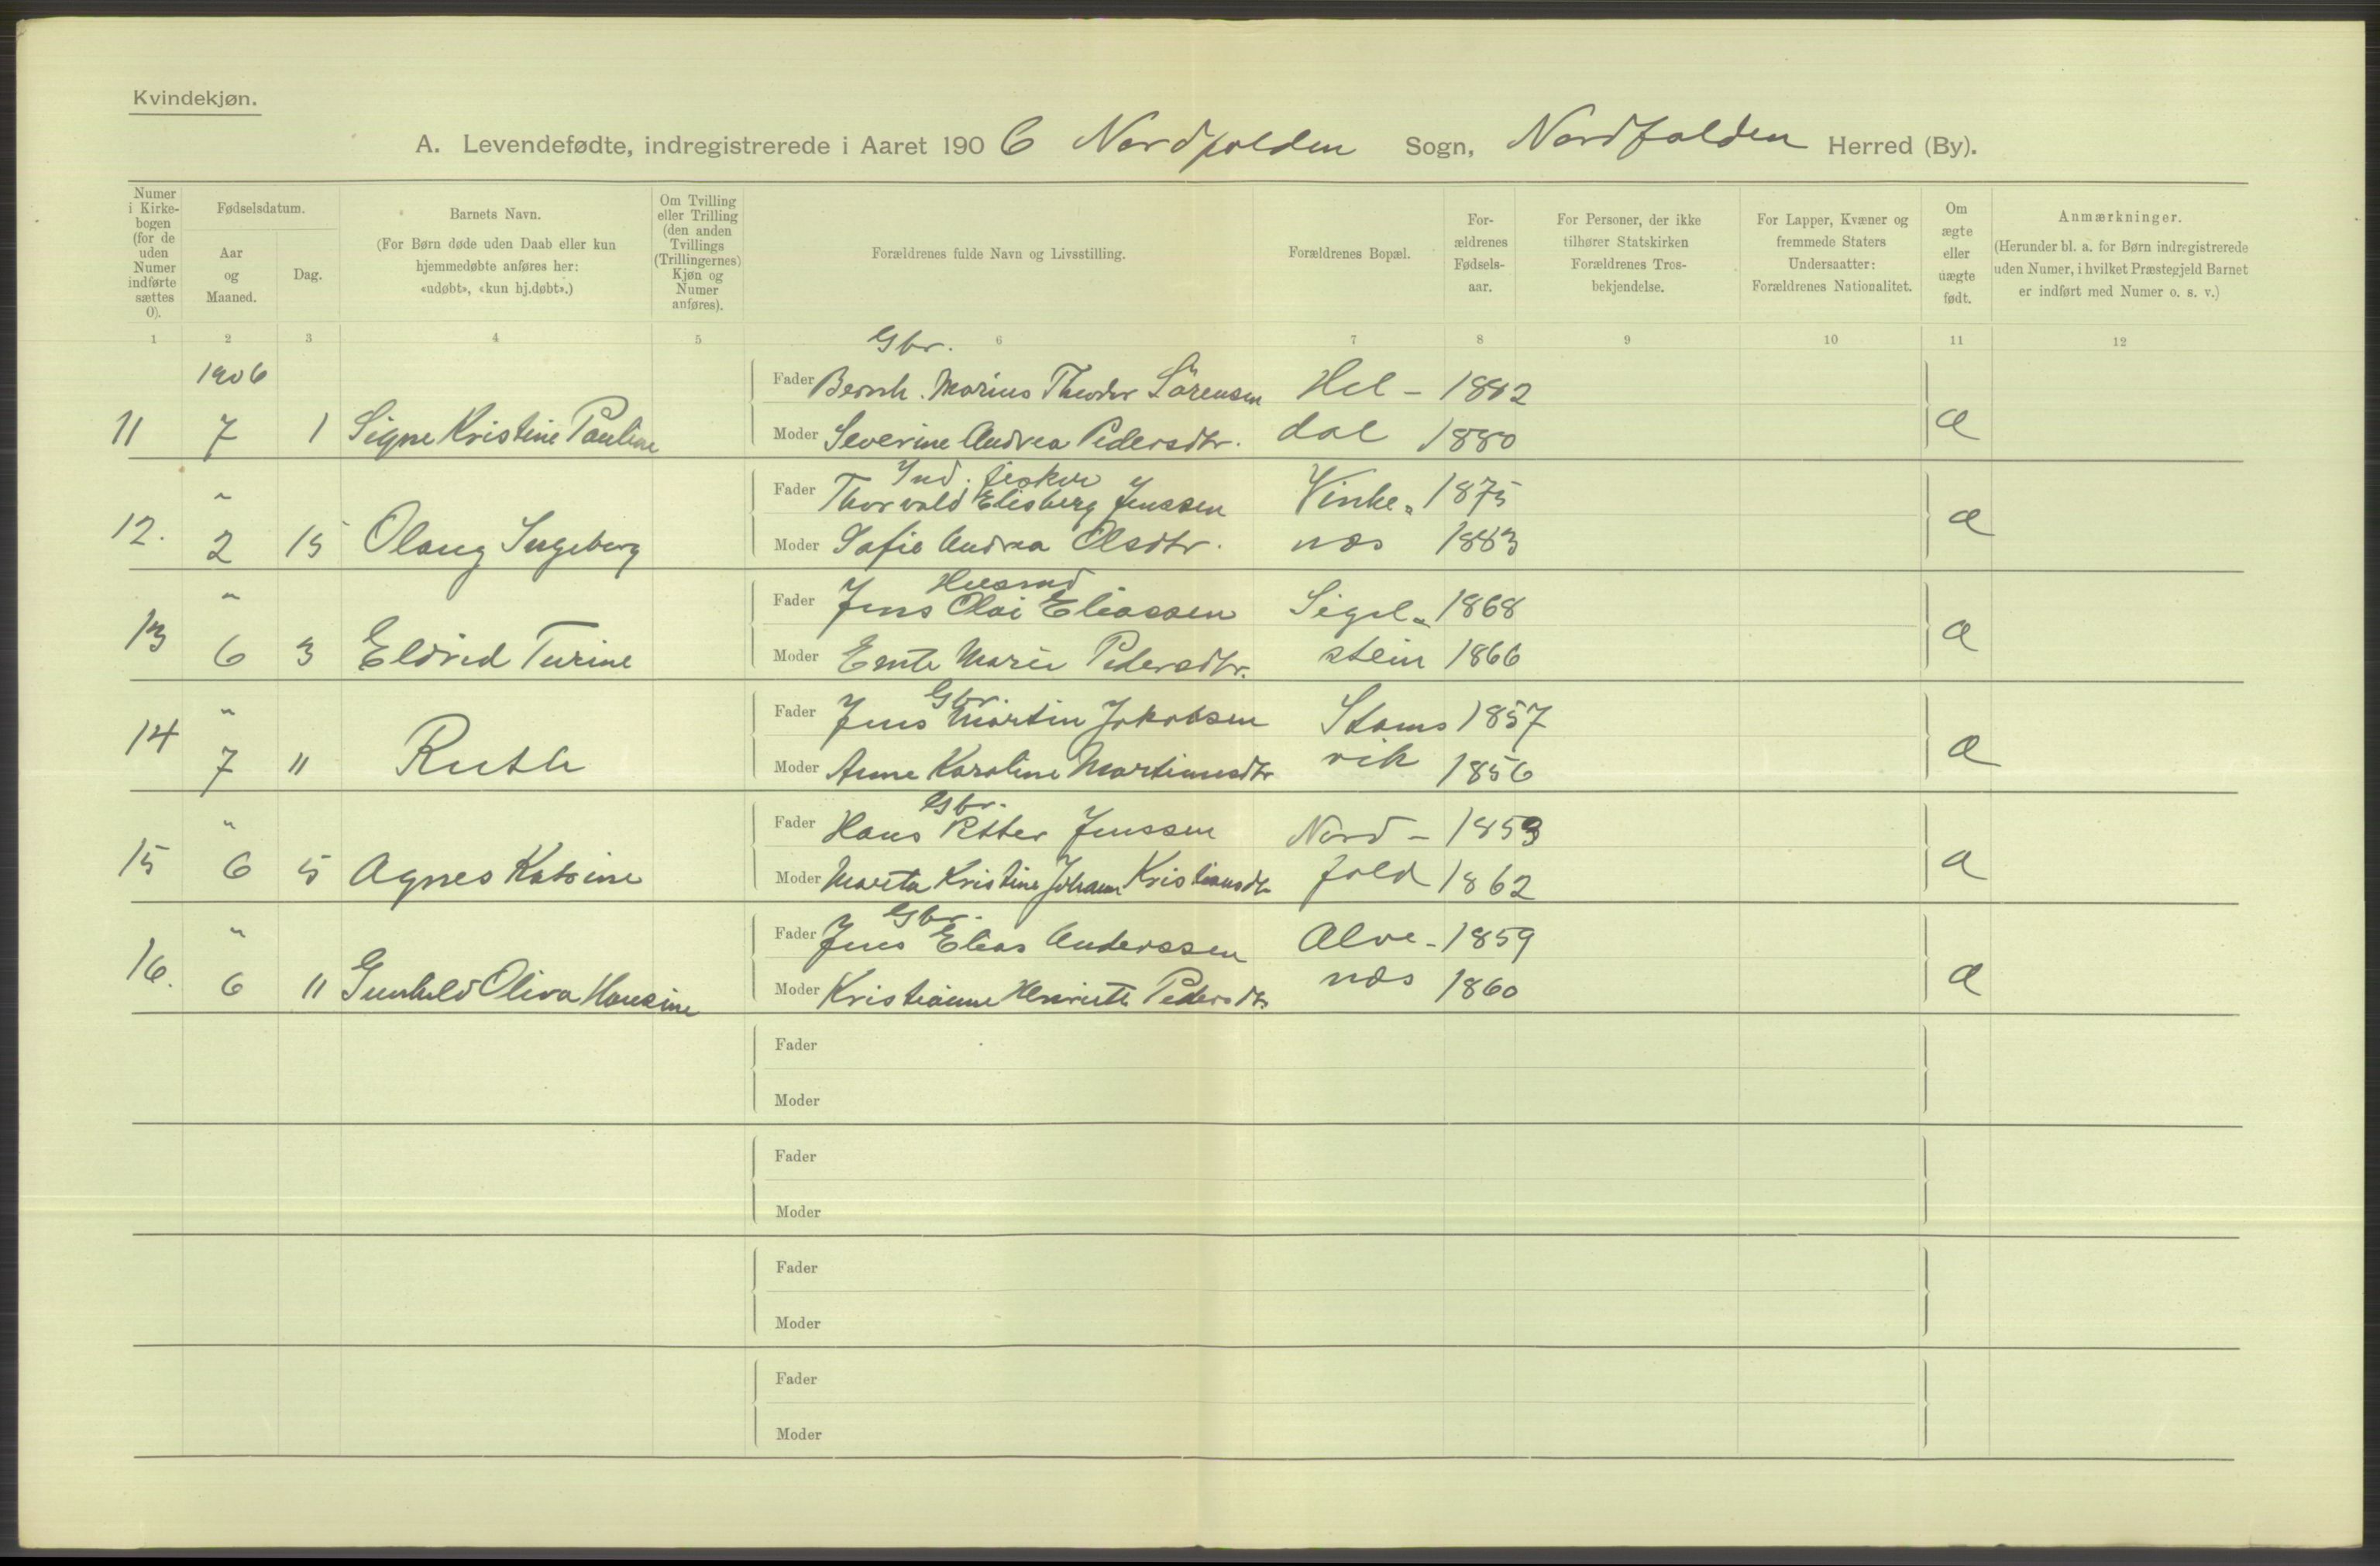 Kvindekjøn.
A. Levendefødte, indregistrerede i Aaret 1906 Nordfolden Sogn, Nordfolden Herred (By).
Numer i Kirkebogen (for de uden Numer indførte sættes 0).
Fødselsdatum.
Aar og Maaned.
Dag.
Barnets Navn.
(For Børn døde uden Daab eller kun hjemmedøbte anføres her: «udøbt», «kun hj.døbt».)
Om Tvilling eller Trilling (den anden Tvillings (Trillingernes) Kjøn og Numer anføres).
Forældrenes fulde Navn og Livsstilling.
Forældrenes Bopæl.
Forældrenes Fødselsaar.
For Personer, der ikke tilhører Statskirken Forældrenes Trosbekjendelse.
For Lapper, Kvæner og fremmede Staters Undersaatter: Forældrenes Nationalitet.
Om ægte eller uægte født.
Anmærkninger.
(Herunder bl. a. for Børn indregistrerede uden Numer, i hvilket Præstegjeld Barnet er indført med Numer o. s. v.)
1 2 3 4 5 6 7 8 9 10 11 12
Gbr.
1906 Fader Bernh. Marius Theodor Sörensen Hel- 1882
11 7 1 Signe Kristine Pauline Moder Severine Andrea Pedersdtr. dal 1880 æ
Ind. fisker
" Fader Thorvald Elisberg Jenssen Vinke- 1875
12. 2 15 Olaug Ingeborg Moder Sofie Andrea Olsdtr. næs 1883 æ
Husmd
" Fader Jens Olai Eliassen Sigel- 1868
13 6 3 Eldrid Turine Moder Marie Pedersdtr. stein 1866 æ
Gbr.
" Fader Jens Martin Jokobsen Stams 1857
14 7 11 Ruth Moder Anne Karoline Martinusdtr vik 1856 æ
Gbr.
" Fader Hans Petter Jenssen Nord- 1853
15 6 5 Agnes Katrine Moder Marta Kristine Johann Kristiansdtr fold 1862 æ
Gbr.
" Fader Jens Elias Anderssen Alve- 1859
16. 6 11 Gunhild Oliva Hansine Moder Kristianne Henriette Pedersdtr næs 1860 æ
Fader
Moder
Fader
Moder
Fader
Moder
Fader
Moder